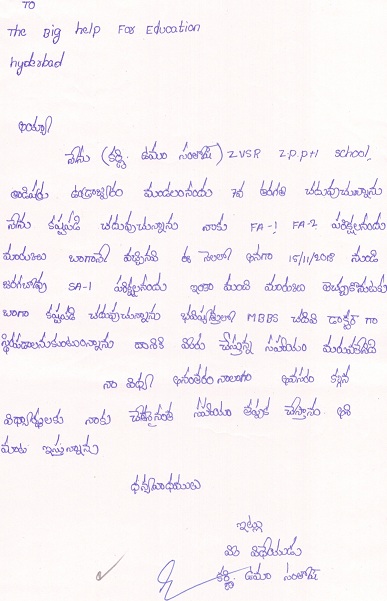 TO
The Big help For Education
hyderabad
అయ్యా
నేను (కర్రి. ఉమా సంతోష్) ZVSR Z.p.p+l school,
మండలంనందు 7వ తరగతి చదువుచున్నాను
నేను కష్టపడి చదువుచున్నాను నాకు FA-1 FA-2 పరీక్షలనందు
మార్కులు బాగానే వచ్చినవి ఈ నెలలో అనగా 15/11/2018 నుండి
జరగబోవు SA-1 పరీక్షలనందు ఇంకా మంచి మార్కులు తెచ్చుకొనుటకు
బాగా కష్టపడి చదువుచున్నాను భవిష్యత్తులో MBBS చదివి డాక్టర్ గా
స్థిరపడాలనుకుంటున్నాను దానికి మీరు చేస్తున్న సహాయం మరువలేనిది
నా విద్య అనంతరం నాలాగా అవసరం కల్గిన
విద్యార్థులకు నాకు చేతనైనంత సహాయం తప్పక చేస్తాను అని
మాట ఇస్తున్నాను
ధన్యవాదములు
ఇట్లు
మీ విధేయుడు
కర్రి. ఉమా సంతోష్